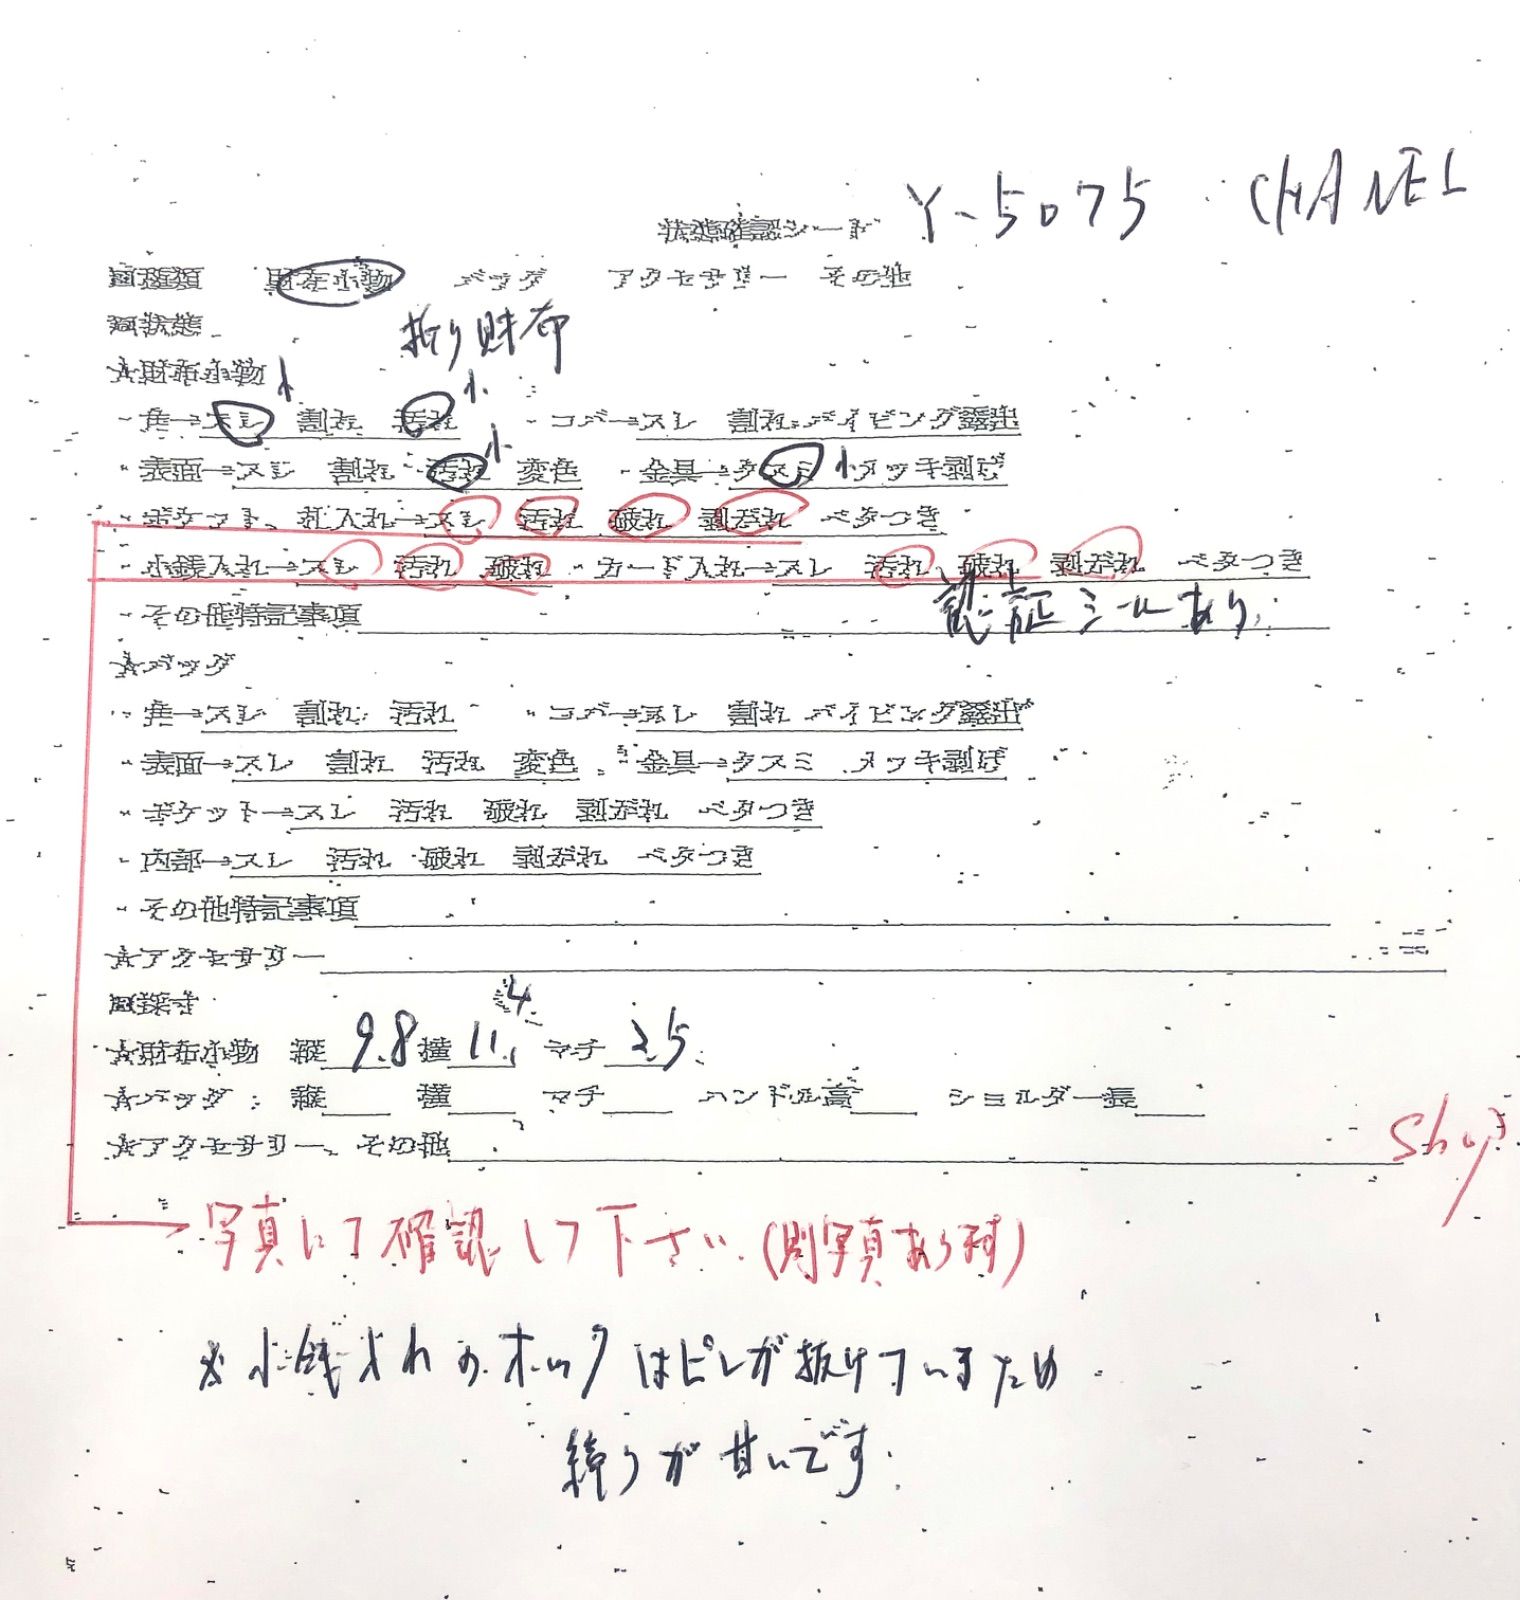 状態確認シート Y-5075 CHANEL
■種類 財布小物 バッグ アクセサリー その他
■状態 折り財布
★財布小物 小 小
・角→スレ 割れ 汚れ ・コバ→スレ 割れ パイピング露出
・表面→スレ 割れ 汚れ 小 変色 ・金具→クスミ 小 メッキ剥げ
・ポケット、札入れ→スレ 汚れ 破れ 剥がれ ベタつき
・小銭入れ→スレ 汚れ 破れ ・カード入れ→スレ 汚れ 破れ 剥がれ ベタつき
・その他特記事項 認証シールあり
★バッグ
・角→スレ 割れ 汚れ ・コバ→スレ 割れ パイピング露出
・表面→スレ 割れ 汚れ 変色 ・金具→クスミ メッキ剥げ
・ポケット→スレ 汚れ 破れ 剥がれ ベタつき
・内部→スレ 汚れ 破れ 剥がれ ベタつき
・その他特記事項
★アクセサリー
■採寸
★財布小物 縦 9.8 横 11.4 マチ 2.5
★バッグ 縦 横 マチ ハンドル高 ショルダー長
★アクセサリー、その他
写真にて確認して下さい.(別写真あります)
※小銭入れのホックはピンが抜けているため
締りが甘いです.